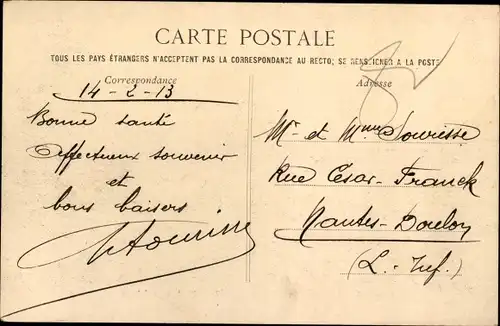 CARTE POSTALE
TOUS LES PAYS ÉTRANGERS N'ACCEPTENT PAS LA CORRESPONDANCE AU RECTO; SE RENSEIGNER A LA POSTE
Correspondance
14 - 2 - 13
Bonne santé
affectueux souvenir
et
bons baisers
Adresse
Mr et Mme Sourisse
Rue César-Franck
Nantes-Doulon
(L.-Inf.)